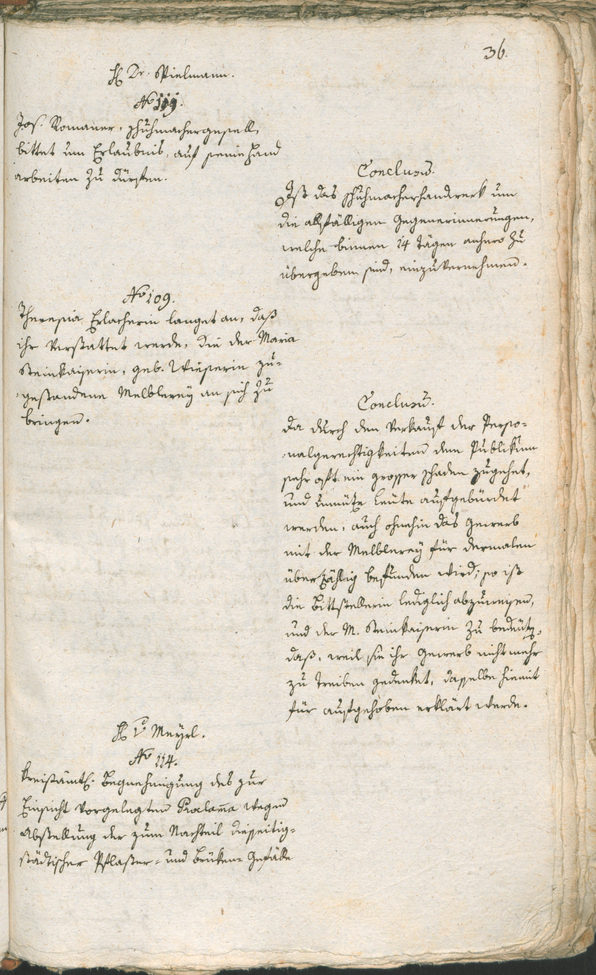 36.
H Dr. Spielmann.
No 119.
Jos. Romaner, Schuhmachergesell,
bittet um Erlaubnis, auf seine Hand
arbeiten zu dürfen.
Conclusum.
Ist das Schuhmacherhandwerk um
die allfälligen Gegenerinnerungen,
welche binnen 14 Tägen anhero zu
übergeben sind, einzuvernehmen.
No 109.
Theresia Erlacherin langet an, daß
ihr verstattet werde, die der Maria
Steinkaiserin, geb. Wieserin zu-
gestandene Melblerey an sich zu
bringen.
Conclusum.
Da durch den Verkauf der Perso-
nalgerechtigkeiten dem Publikum
sehr oft ein grosser Schaden zugehet,
und unnütze Leute aufgebürdet
werden, auch ohnehin das Gewerb
mit der Melblerey für dermalen
überzählig befunden wird; so ist
die Bittstellerin lediglich abzuweisen,
und der M. Steinkaiserin zu bedeuten,
daß, weil sie ihr Gewerb nicht mehr
zu treiben gedenket, dasselbe hiemit
für aufgehoben erklärt werde.
H v Meyrl.
No 114.
Kreisämtl. Begnehmigung des zur
Einsicht vorgelegten Proclama wegen
Abstellung der zum Nachteil diesseitig-
städtischer Pflaster- und Brüken- Gefälle